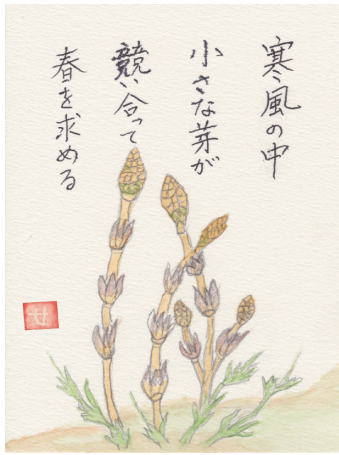 寒風の中
小さな芽が
競い合って
春を求める